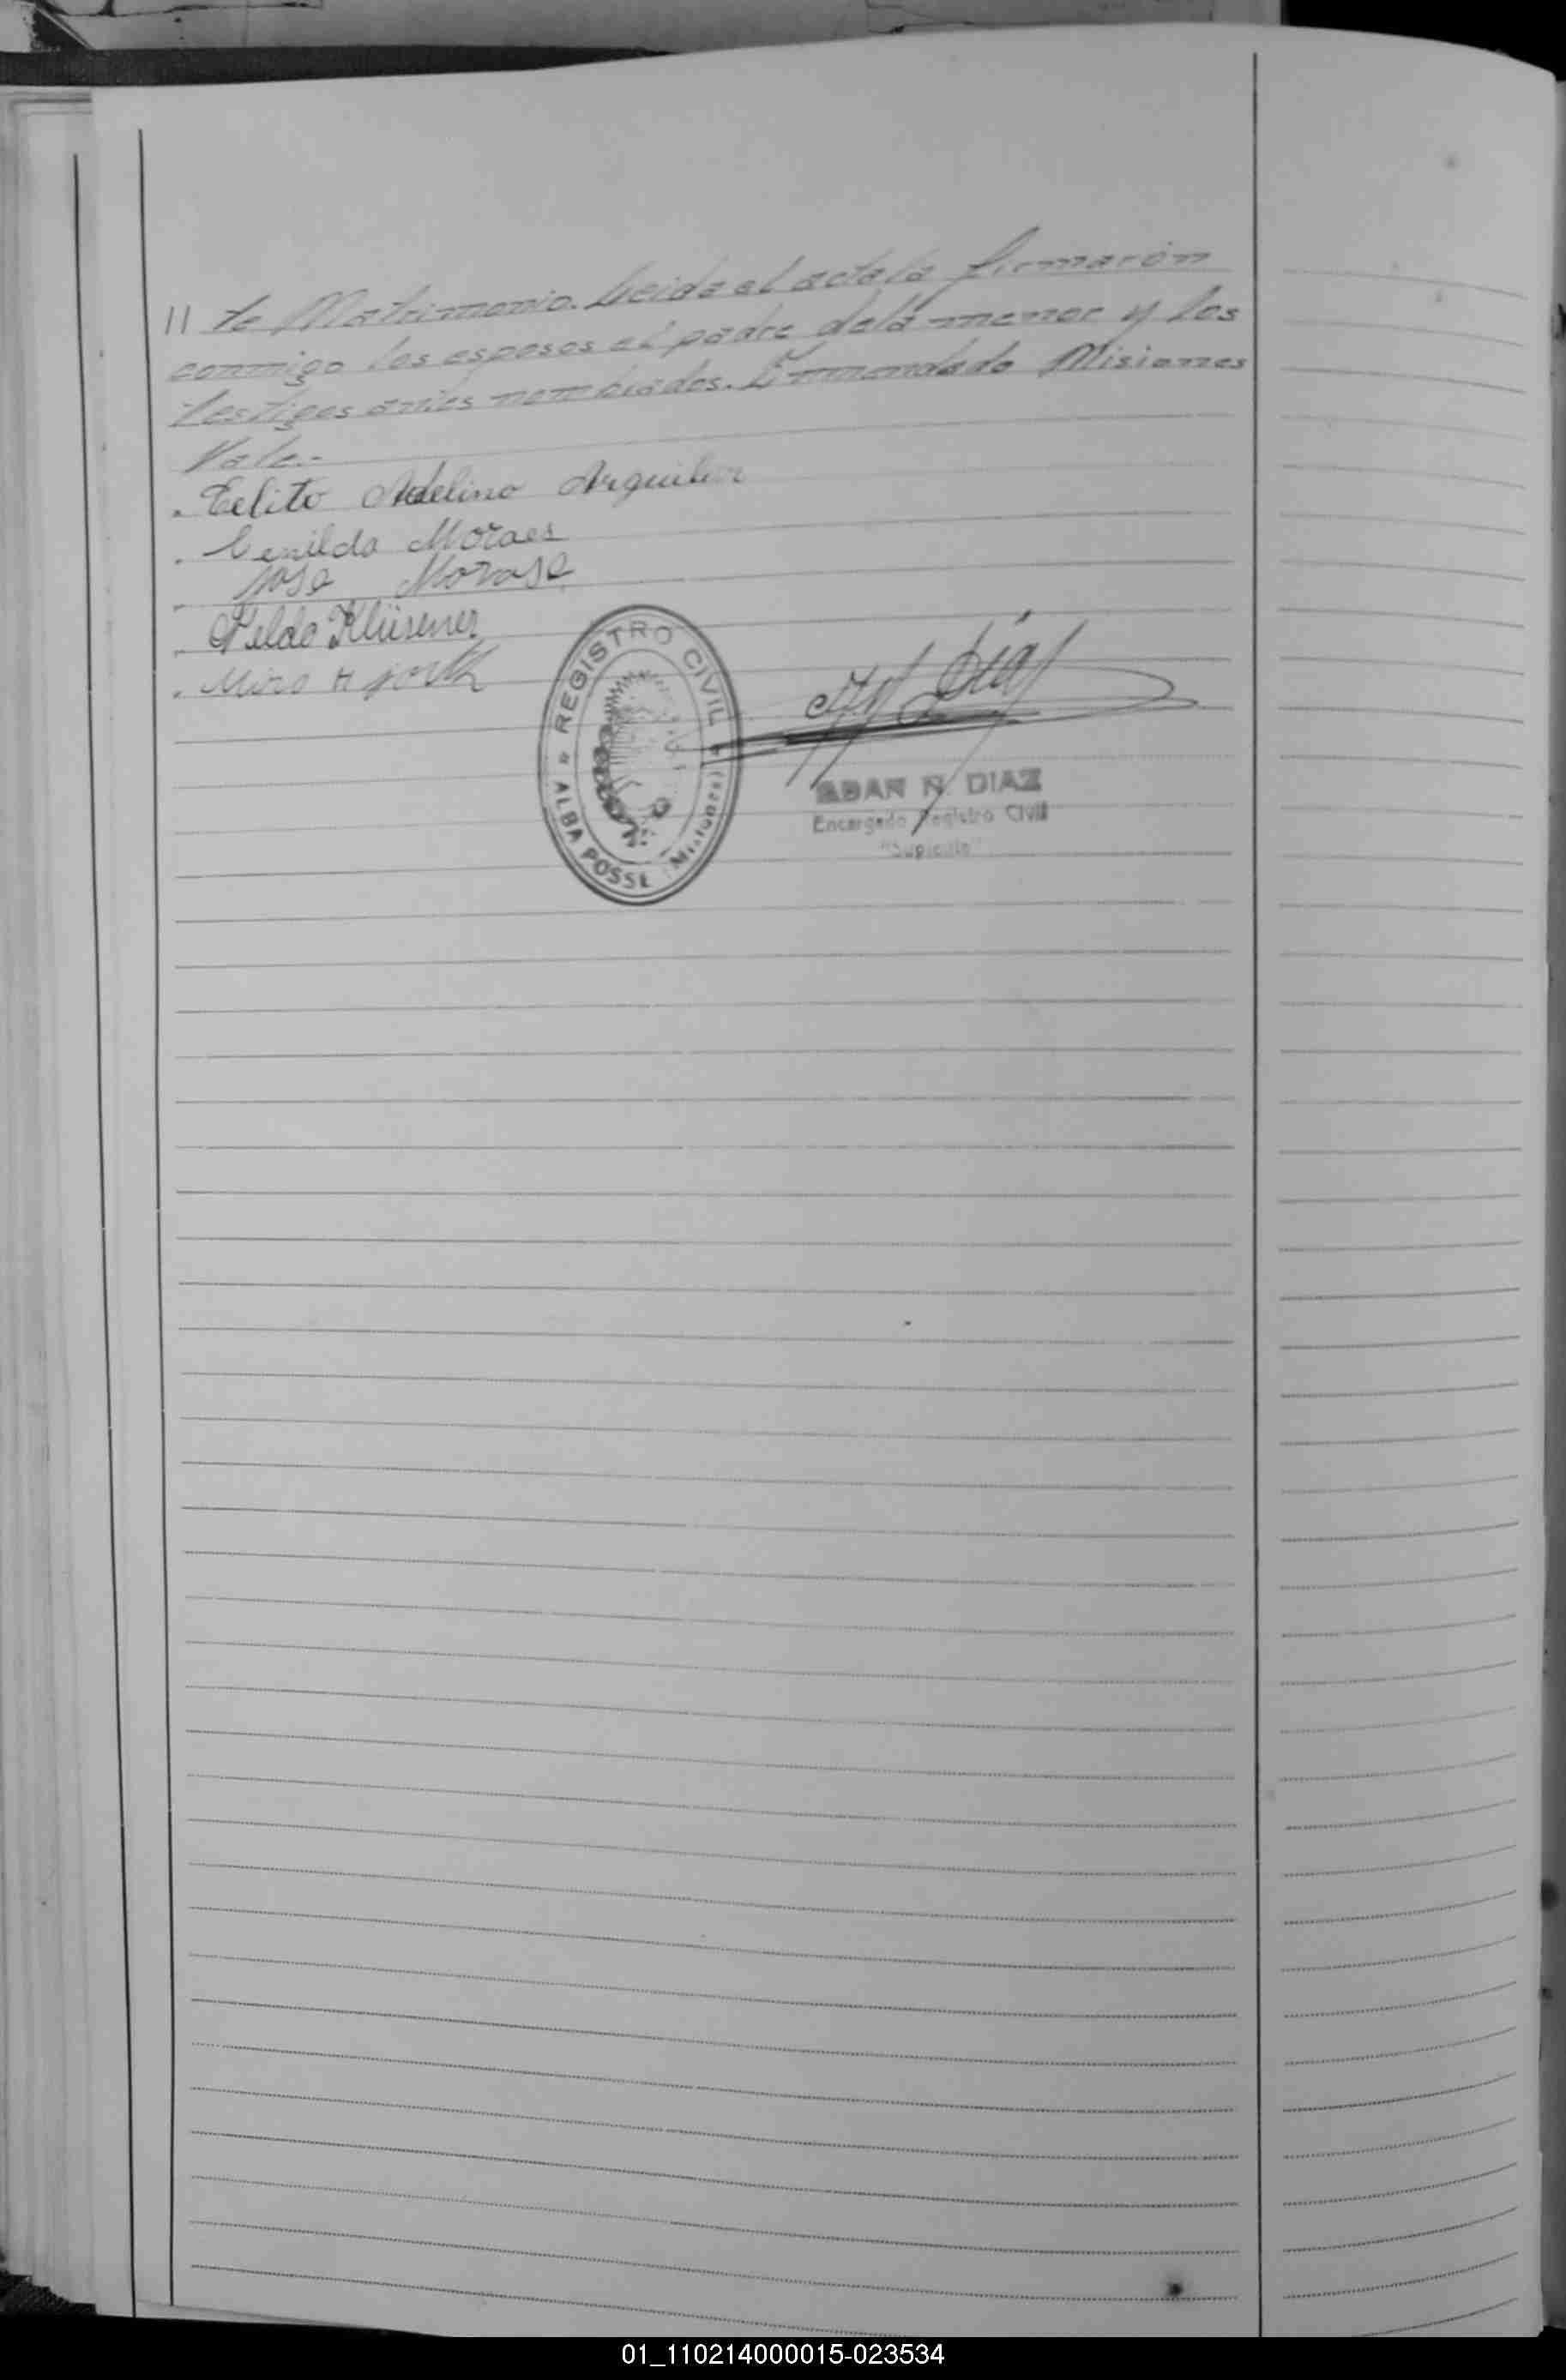 11 to Matrimonio. Leida el acta la firmarón
conmigo los esposos el padre dela menor y los
testigos antes nombrados. Enmendado Misiones
Vale.-
Adelino
Cenilda Moraes
José Morase
Nelda Klüsener
Miro H
REGISTRO CIVIL
ALBA POSSE (Misiones)
Diaz
ADAN N. DIAZ
Encargado Registro Civil
"Suplente"
01_110214000015-023534